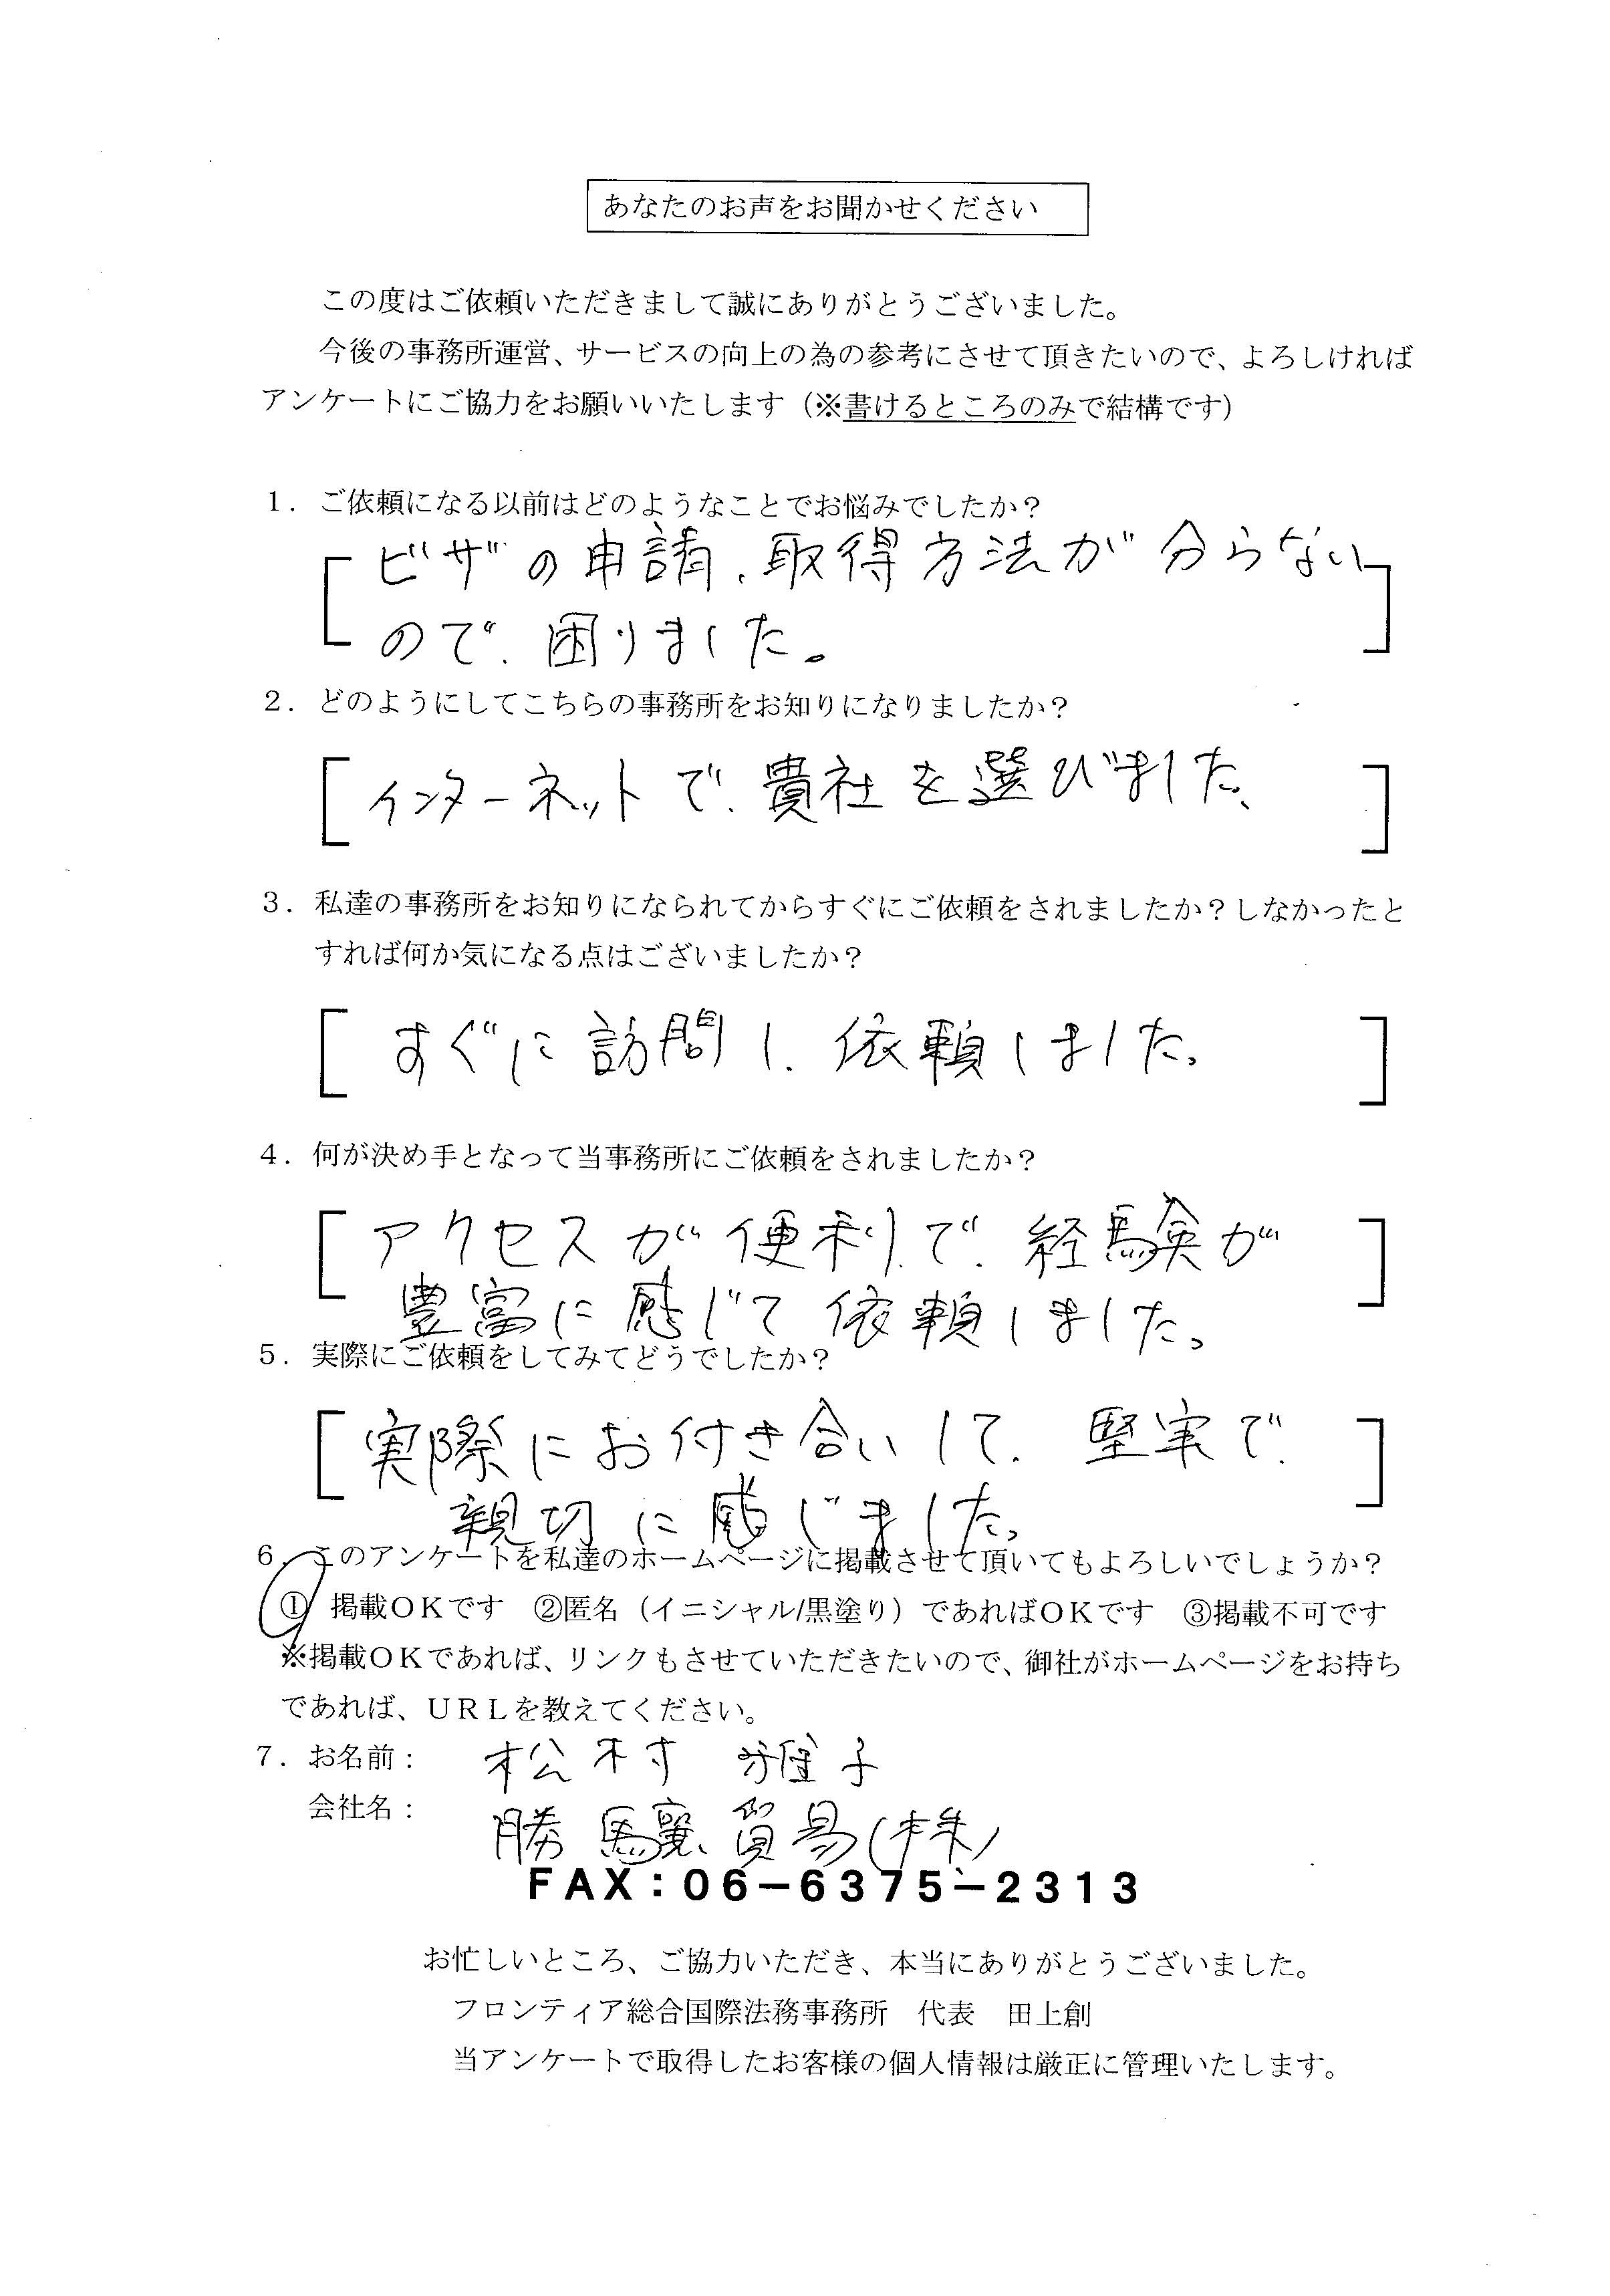 あなたのお声をお聞かせください
この度はご依頼いただきまして誠にありがとうございました。
今後の事務所運営、サービスの向上の為の参考にさせて頂きたいので、よろしければ
アンケートにご協力をお願いいたします（※書けるところのみで結構です）
１．ご依頼になる以前はどのようなことでお悩みでしたか？
ビザの申請、取得方法が分らない
ので、困りました。
２．どのようにしてこちらの事務所をお知りになりましたか？
インターネットで、貴社を選びました。
３．私達の事務所をお知りになられてからすぐにご依頼をされましたか？しなかったと
すれば何か気になる点はございましたか？
すぐに訪問し、依頼しました。
４．何が決め手となって当事務所にご依頼をされましたか？
アクセスが便利で、経験が
豊富に感じて依頼しました。
５．実際にご依頼をしてみてどうでしたか？
実際にお付き合いして、堅実で、
親切に感じました。
６．このアンケートを私達のホームページに掲載させて頂いてもよろしいでしょうか？
① 掲載ＯＫです ②匿名（イニシャル/黒塗り）であればＯＫです ③掲載不可です
※掲載ＯＫであれば、リンクもさせていただきたいので、御社がホームページをお持ち
であれば、ＵＲＬを教えてください。
７．お名前： 松村 雅子
会社名： 勝驤貿易(株)
ＦＡＸ：０６－６３７５－２３１３
お忙しいところ、ご協力いただき、本当にありがとうございました。
フロンティア総合国際法務事務所 代表 田上創
当アンケートで取得したお客様の個人情報は厳正に管理いたします。